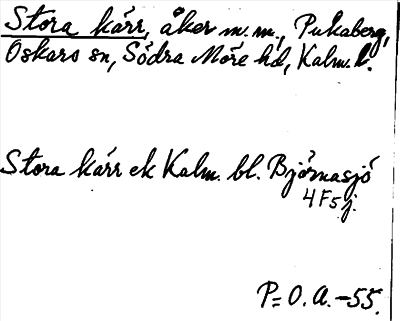 Stora kärr, åker m.m., Pukaberg,
Oskars sn, Södra Möre hd, Kalm. l.
Stora kärr ek Kalm. bl. Björnasjö
4F5j.
P=O.A.-55.